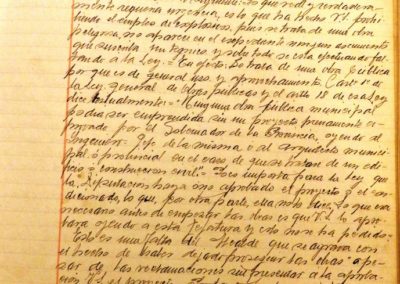 mente requería
biendo el empleo de explosivos, pues se trata de una obra
peligrosa, no aparece en el expediente ningun documento
que suscriba un tecnico y sobre todo se esta efectuando fal
tando a la Ley. = En efecto. Se trata de una obra publica
por que es de general uso y aprovechamiento (arto 1º de
la Ley general de obras publicas y el arto de esa Ley
dice textualmente: = "Ninguna obra publica municipal
podra ser emprendida sin un proyecto previamente a-
probado por el Gobernador de la Provincia, oyendo al
Ingeniero Jefe de la misma ó al arquitecto munici-
pal ó provincial en el caso de que se trate de un edi-
ficio ó construccion civil." = Poco importa para la Ley que
la Diputacion haya aprobado el proyecto ó el
dicionado, lo que, por otra parte, ella no lo hizo; lo que era
necesario antes de empezar las obras es que V.E. lo apro
bara oyendo a esta Jefatura y esto no se ha pedido.
Esto es una falta del Alcalde que se agrava con
el hecho de haber dejado proseguir las obras a pe-
sar de las reclamaciones sin presentar a la aproba-
cion V.E. el proyecto